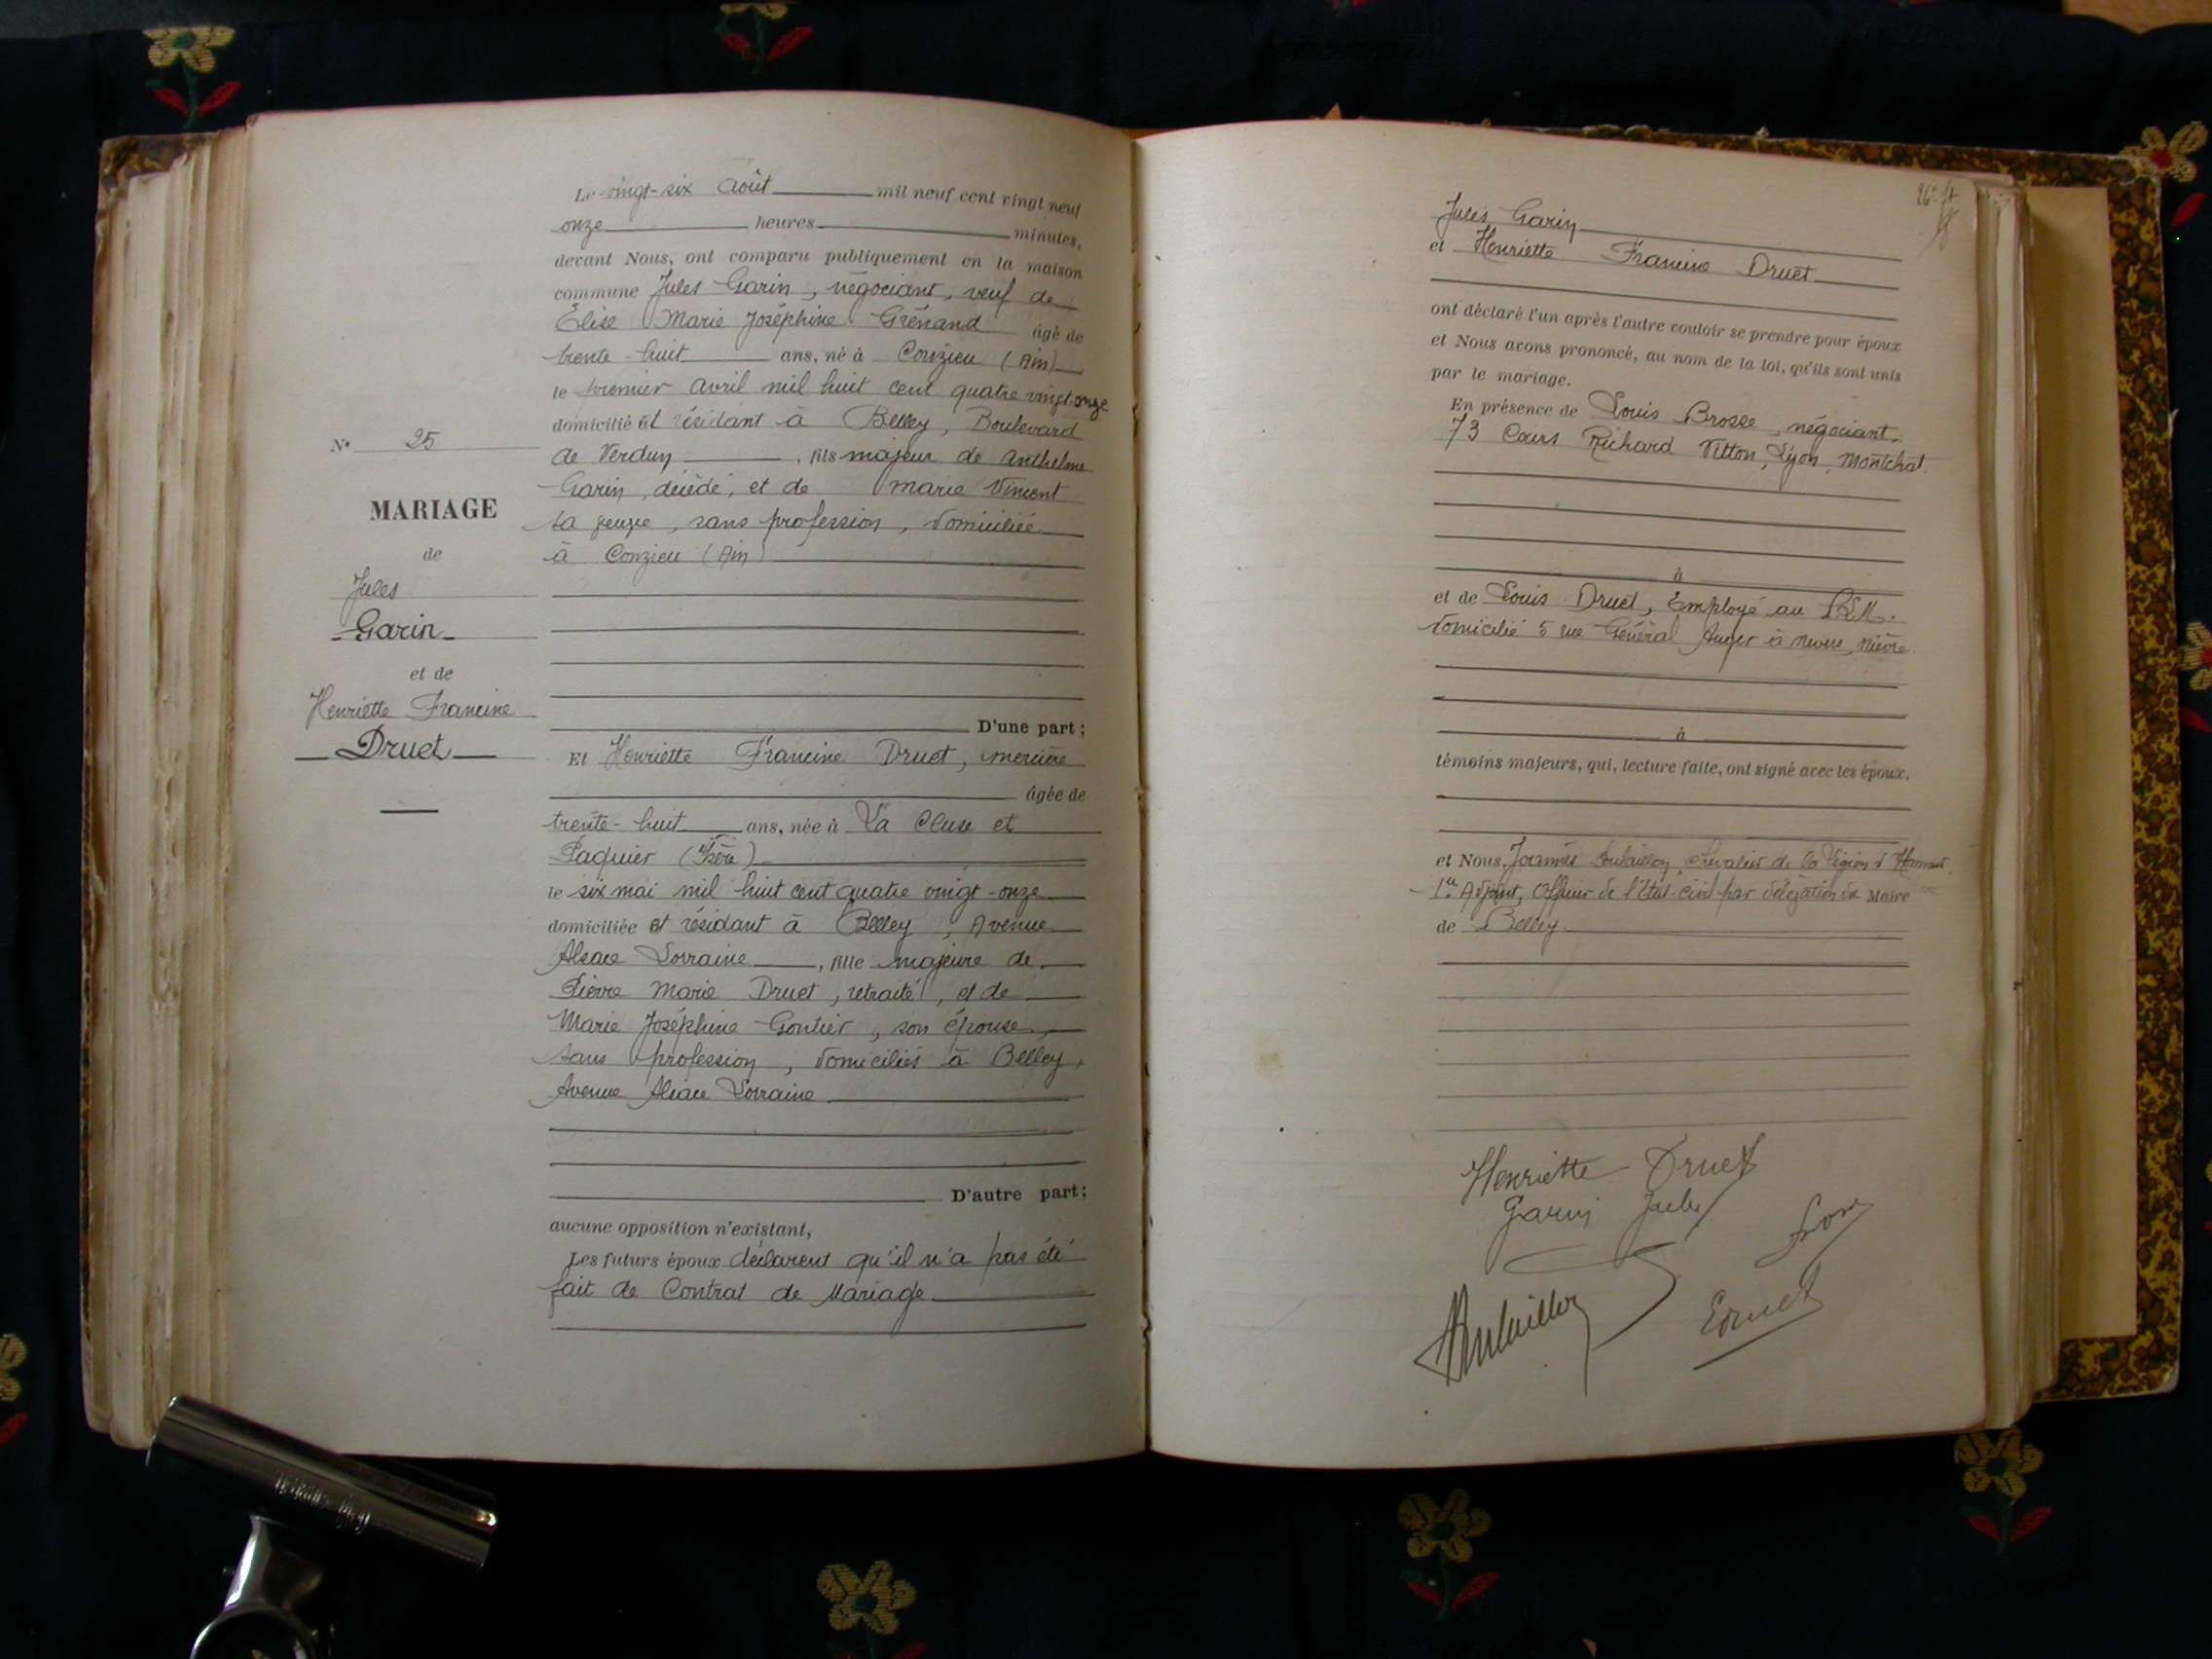 N° 25
MARIAGE
de
Jules
Garin
et de
Henriette Francine
Druet
Le vingt-six Août mil neuf cent vingt neuf
onze heures minutes,
devant Nous, ont comparu publiquement en la maison
commune Jules Garin, négociant, veuf de
Elise Marie Joséphine Grénand âgé de
trente-huit ans, né à Conzieu (Ain)
le premier avril mil huit cent quatre vingt-onze
domicilié et résidant à Belley, Boulevard
de Verdun, fils majeur de Anthelme
Garin, décédé, et de Marie Vincent
sa veuve, sans profession, domiciliée
à Conzieu (Ain)
D'une part;
Et Henriette Francine Druet, mercière
âgée de
trente-huit ans, née à La Cluse et
Paquier (Isère)
le six mai mil huit cent quatre vingt-onze
domiciliée et résidant à Belley, Avenue
Alsace Lorraine, fille majeure de
Pierre Marie Druet, retraité, et de
Marie Joséphine Gontier, son épouse,
sans profession, domiciliés à Belley,
Avenue Alsace Lorraine
D'autre part;
aucune opposition n'existant,
Les futurs époux déclarent qu'il n'a pas été
fait de Contrat de Mariage
Jules Garin
et Henriette Francine Druet
ont déclaré l'un après l'autre vouloir se prendre pour époux
et Nous avons prononcé, au nom de la loi, qu'ils sont unis
par le mariage.
En présence de Louis Brosse, négociant,
73 Cours Richard Vitton, Lyon, Montchat.
à
et de Louis Druet, Employé au P.L.M.
domicilié 5 rue Général Auger à Nevers, Nièvre
à
témoins majeurs, qui, lecture faite, ont signé avec les époux,
et Nous, Joannès Soubaillon, Chevalier de la Légion d'Honneur
1er Adjoint, Officier de l'Etat-civil par délégation du Maire
de Belley
Henriette Druet
Garin Jules
Druet